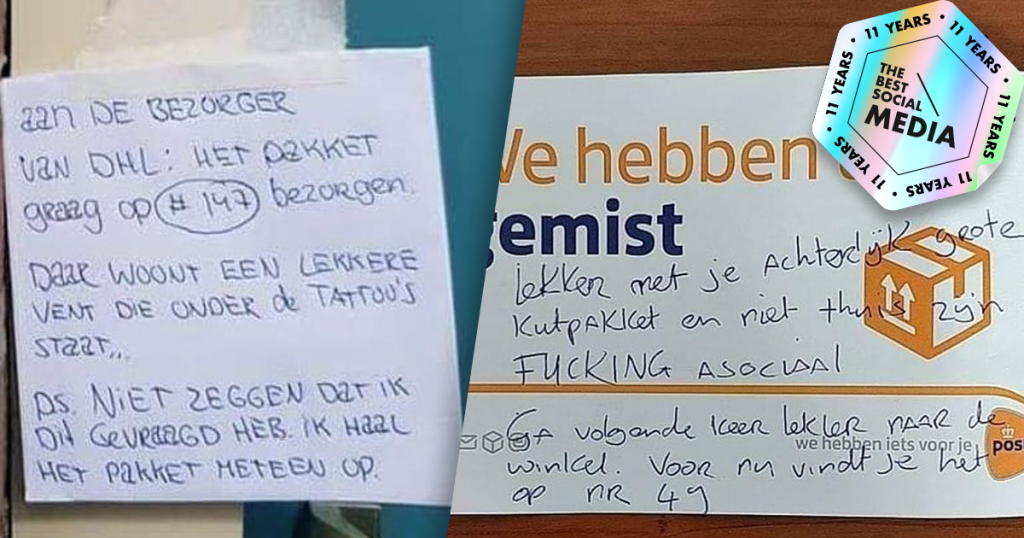 aan DE BEZORGER
van DHL: HET pakket
graag op #147 bezorgen.
Daar WOONT EEN LEKKERE
VENT DIE ONDER de TATTOU'S
STaaT...
ps. NIET ZEGGEN DAT IK
DIT GEVRAAGD HEB. IK HaaL
HET PAKKET METEEN OP.
We hebben
gemist
lekker met je achterlijk grote
kutpakket en niet thuis zijn
FUCKING ASOCIAAL
Ga volgende keer lekker naar de
we hebben iets voor je
pos
winkel. Voor nu vindt je het
op nr 49
11 YEARS • 11 YEARS • 11 YEARS • 11 YEARS • 11 YEARS • 11 YEARS •
THE
BEST
SOCIAL
MEDIA